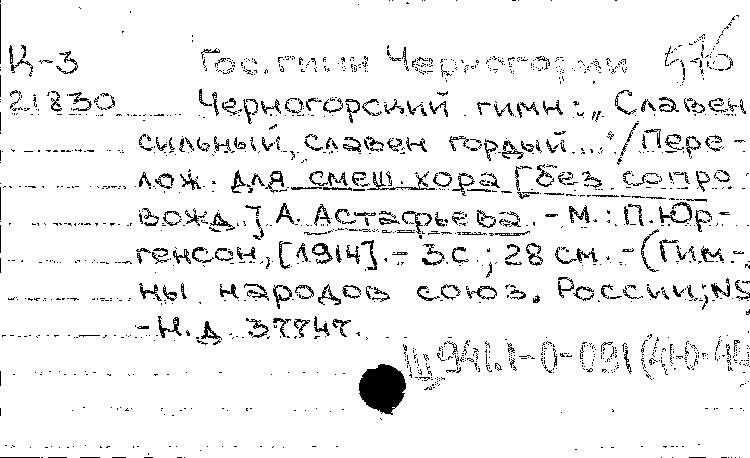 К-3 Гос. гимн Черногории 576
21830 Черногорский гимн: „Славен
сильный, славен гордый..."/Пере-
лож. для смеш. хора [без сопро-
вожд.] А. Астафьева. - М.: П. Юр-
генсон, [1914]. - 3 с.; 28 см. - (Гим-
ны народов союз. России; N5
- Н. д. 37747.
III 941.1-0-091 (41-0-44